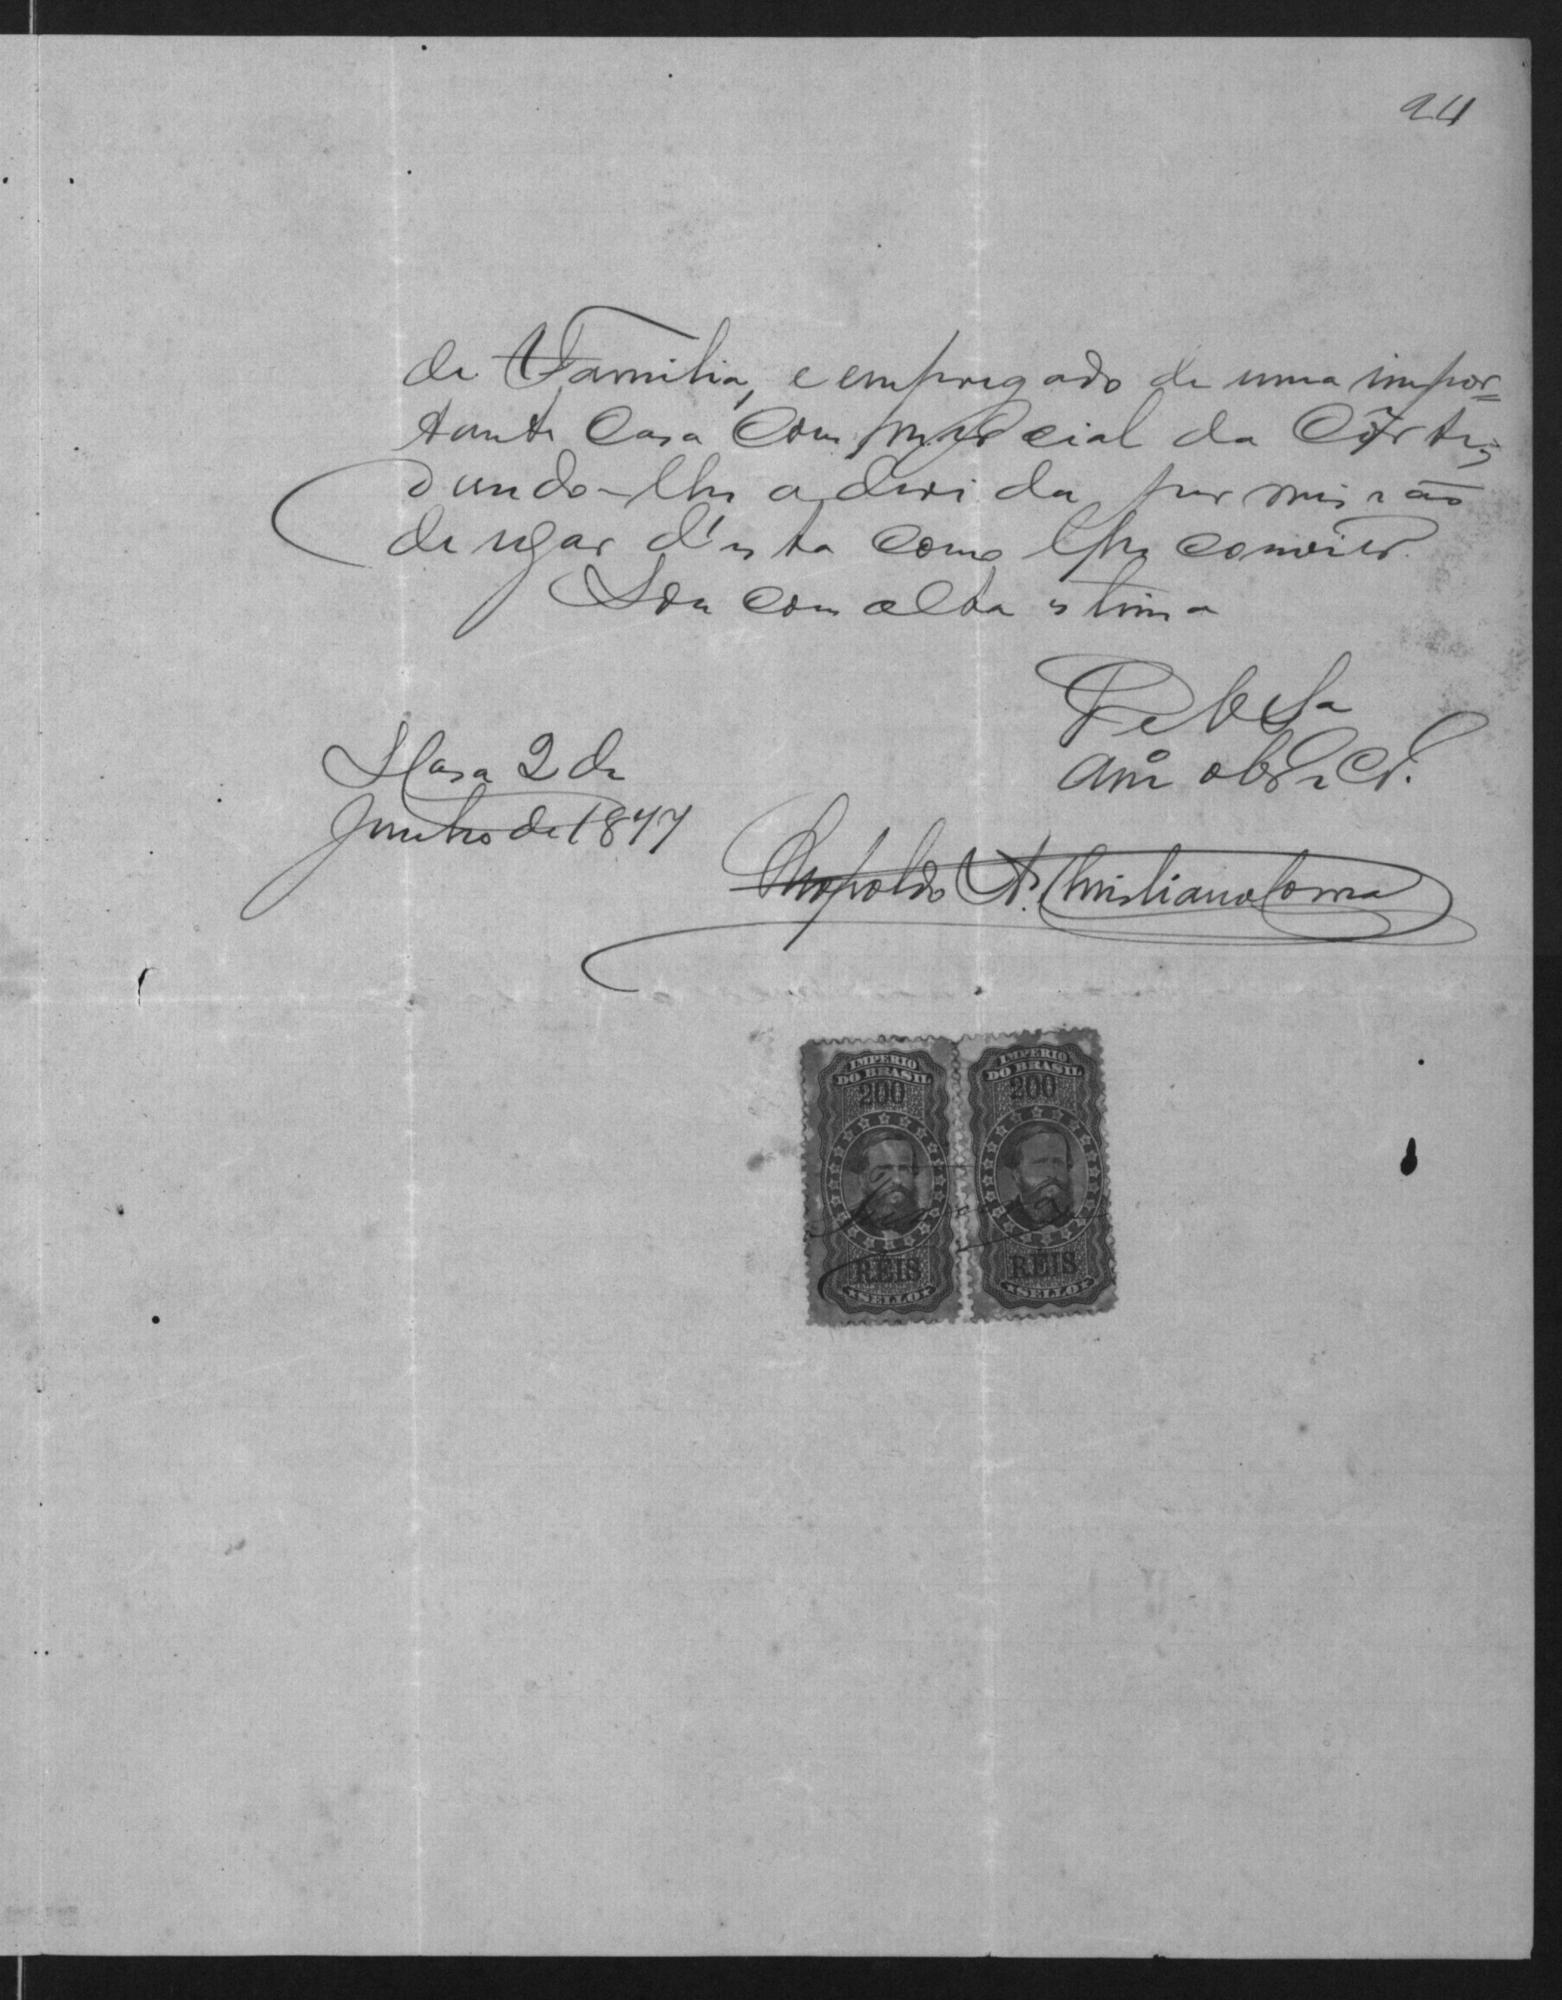 24
de Familia, e empregado de uma impor=
tante Casa Commercial da Côrte;
dando-lhe a devida permissão
de usar d'esta como lhe convier.
Sou com alta estima
De V. Sa
Amº obrº e Cr.
S/Casa 2 de
Junho de 1877
Leopoldo A. Christiano Corrêa
IMPERIO
DO BRASIL
200
REIS
SELLO
IMPERIO
DO BRASIL
200
REIS
SELLO